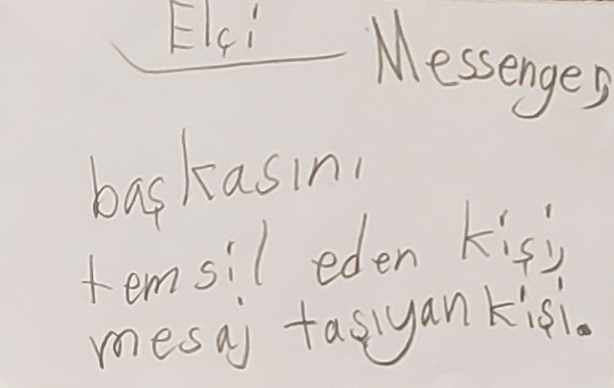 Elçi Messenger,
başkasını
temsil eden kişi,
mesaj taşıyan kişi.